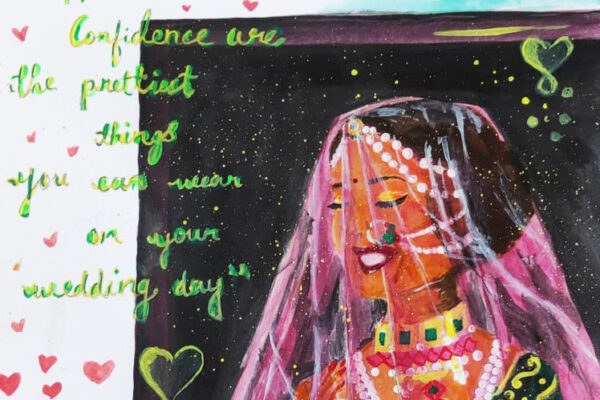 Confidence are
the prettiest
things
you can wear
on your
wedding day"